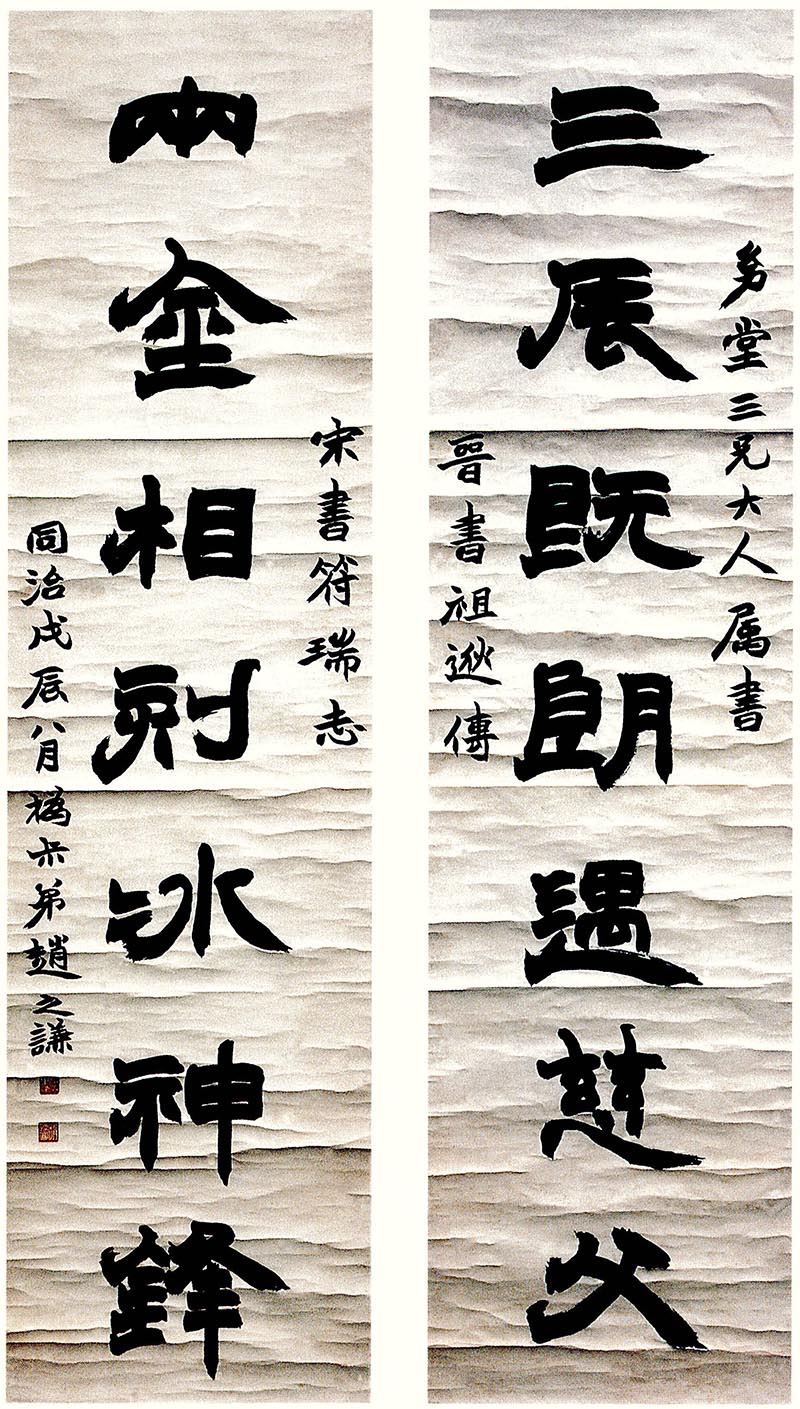 堂三兄大人属書
三辰既朗遇慈父
晉書祖逖傳
宋書符瑞志
兩金相刻發神鋒
同治戊辰八月撝尗弟趙之謙